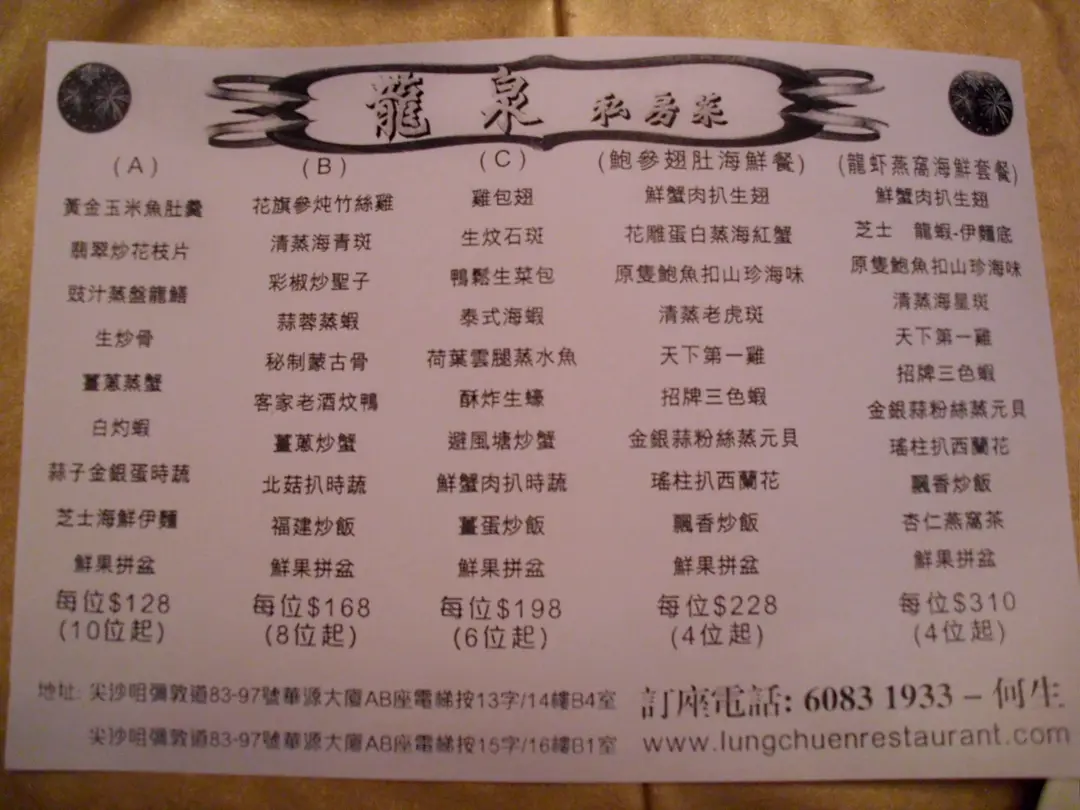 龍泉 私房菜
(A)
黃金玉米魚肚羹
翡翠炒花枝片
豉汁蒸盤龍鱔
生炒骨
薑蔥蒸蟹
白灼蝦
蒜子金銀蛋時蔬
芝士海鮮伊麵
鮮果拼盆
每位$128
(10位起)
(B)
花旗參炖竹絲雞
清蒸海青斑
彩椒炒聖子
蒜蓉蒸蝦
秘制蒙古骨
客家老酒炆鴨
薑蔥炒蟹
北菇扒時蔬
福建炒飯
鮮果拼盆
每位$168
(8位起)
(C)
雞包翅
生炆石斑
鴨鬆生菜包
泰式海蝦
荷葉雲腿蒸水魚
酥炸生蠔
避風塘炒蟹
鮮蟹肉扒時蔬
薑蛋炒飯
鮮果拼盆
每位$198
(6位起)
(鮑參翅肚海鮮餐)
鮮蟹肉扒生翅
花雕蛋白蒸海紅蟹
原隻鮑魚扣山珍海味
清蒸老虎斑
天下第一雞
招牌三色蝦
金銀蒜粉絲蒸元貝
瑤柱扒西蘭花
飄香炒飯
鮮果拼盆
每位$228
(4位起)
(龍虾燕窩海鮮套餐)
鮮蟹肉扒生翅
芝士 龍蝦-伊麵底
原隻鮑魚扣山珍海味
清蒸海星斑
天下第一雞
招牌三色蝦
金銀蒜粉絲蒸元貝
瑤柱扒西蘭花
飄香炒飯
杏仁燕窩茶
鮮果拼盆
每位$310
(4位起)
地址: 尖沙咀彌敦道83-97號華源大廈AB座電梯按13字/14樓B4室
尖沙咀彌敦道83-97號華源大廈AB座電梯按15字/16樓B1室
訂座電話: 6083 1933 – 何生
www.lungchuenrestaurant.com